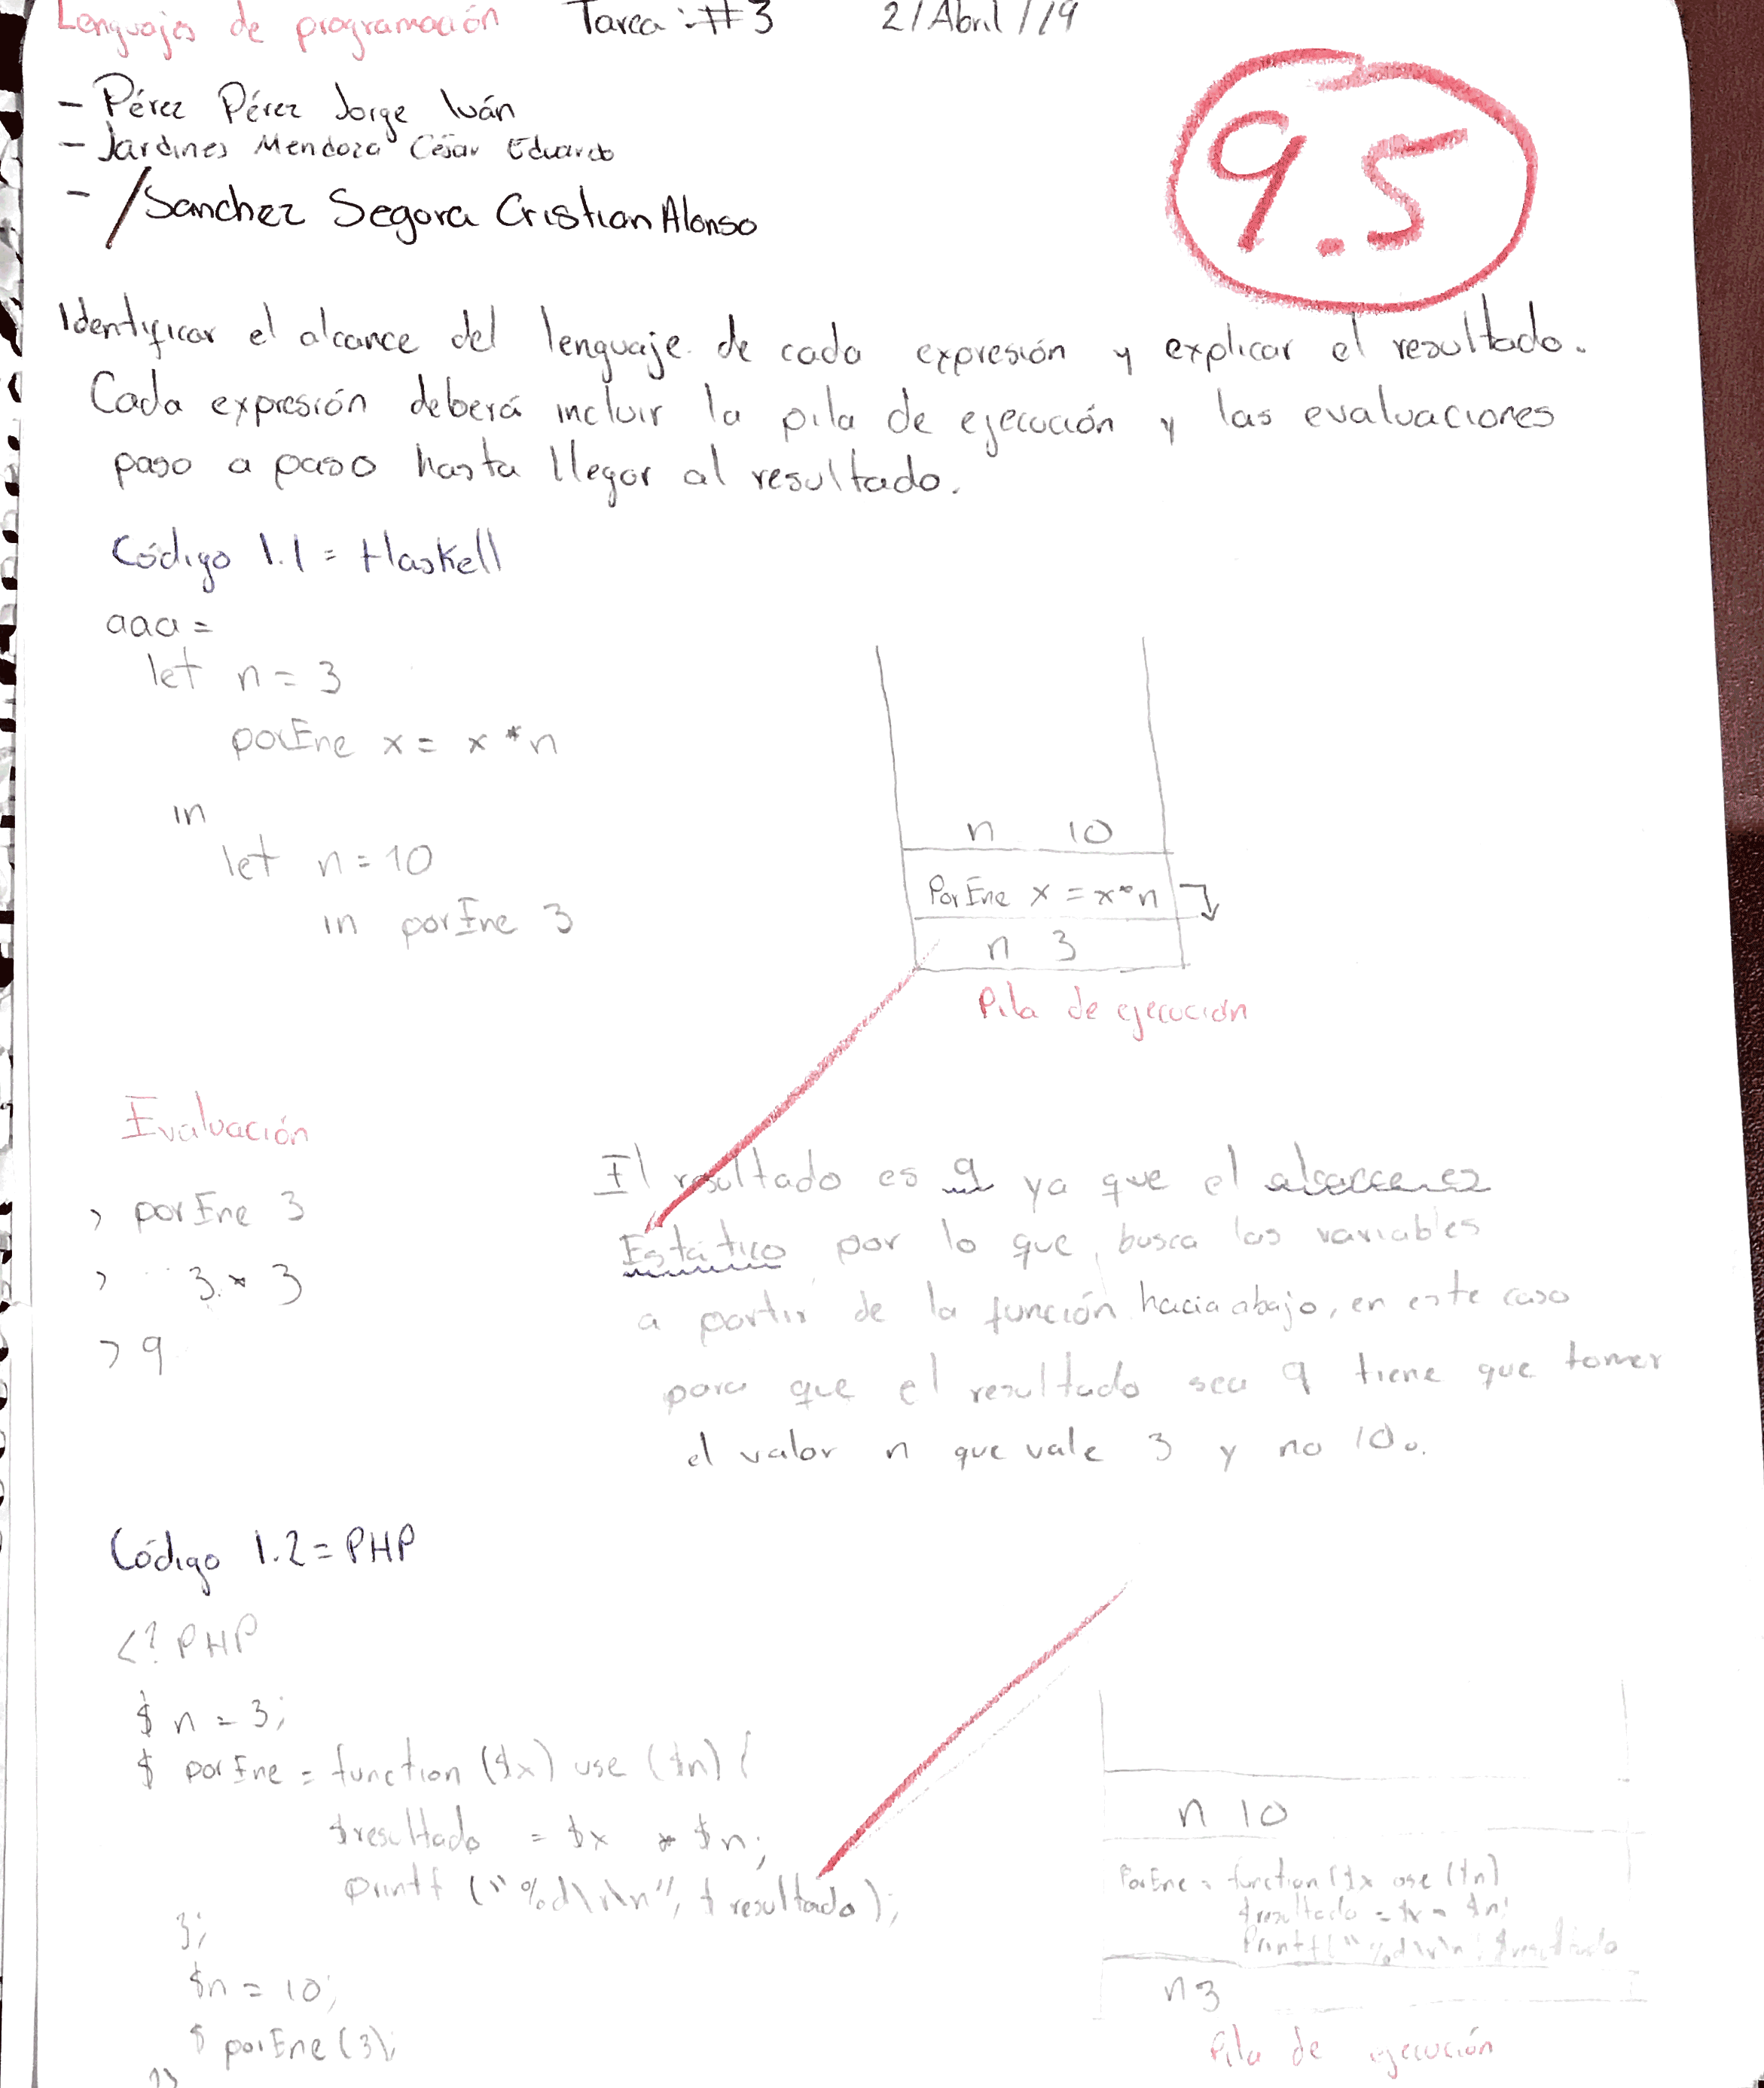 Lenguajes de programación Tarea: #3 2/Abril/19
- Pérez Pérez Jorge Iván
- Jardines Mendoza César Eduardo
- /Sanchez Segora Cristian Alonso
9.5
Identificar el alcance del lenguaje de cada expresión y explicar el resultado.
Cada expresión deberá incluir la pila de ejecución y las evaluaciones
paso a paso hasta llegar al resultado.
Código 1.1 = Haskell
aaa =
let n = 3
porEne x = x * n
in
let n = 10
in porEne 3
n 10
PorEne x = x*n
n 3
Pila de ejecución
Evaluación
> porEne 3
> 3 * 3
> 9
El resultado es 9 ya que el alcance es
Estático por lo que, busca las variables
a partir de la función hacia abajo, en este caso
para que el resultado sea 9 tiene que tomar
el valor n que vale 3 y no 10.
Código 1.2 = PHP
<? PHP
$ n = 3;
$ porEne = function ($x) use ($n) {
$resultado = $x * $n;
printf ("%d\r\n", $resultado);
};
$n = 10;
$ porEne (3);
n 10
PorEne = function ($x use ($n)
$resultado = $x * $n;
Printf ("%d\r\n", $resultado
n 3
Pila de ejecución